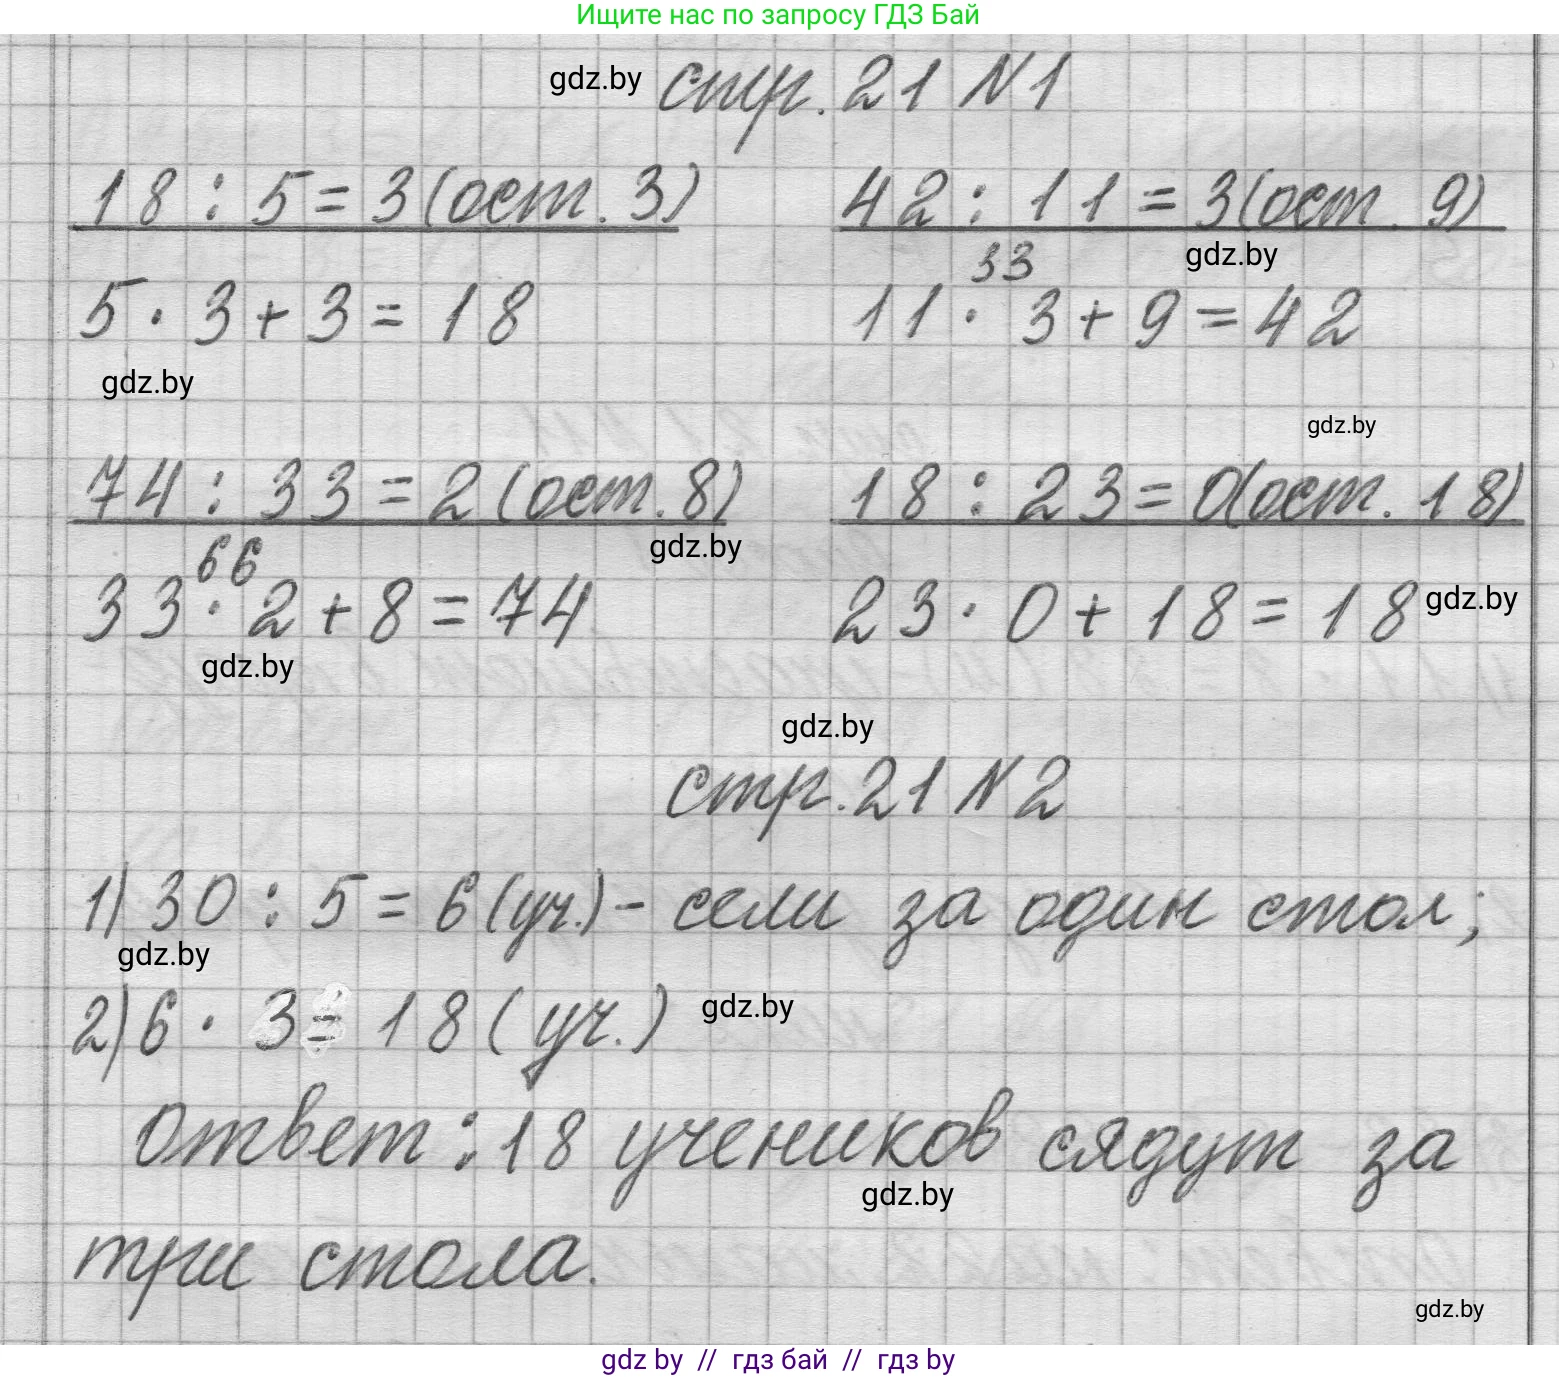 Ищите нас по запросу ГДЗ Бай
gdz.by стр. 21 N1
18 : 5 = 3 (ост. 3) 42 : 11 = 3 (ост. 9)
33 gdz.by
5 · 3 + 3 = 18 11 · 3 + 9 = 42
gdz.by
gdz.by
74 : 33 = 2 (ост. 8) 18 : 23 = 0 (ост. 18)
66 gdz.by
33 · 2 + 8 = 74 23 · 0 + 18 = 18 gdz.by
gdz.by
gdz.by
стр. 21 N2
1) 30 : 5 = 6 (уч.) - сели за один стол;
gdz.by
2) 6 · 3 = 18 (уч.) gdz.by
Ответ : 18 учеников сядут за
gdz.by
три стола.
gdz.by
gdz by // гдз бай // гдз by